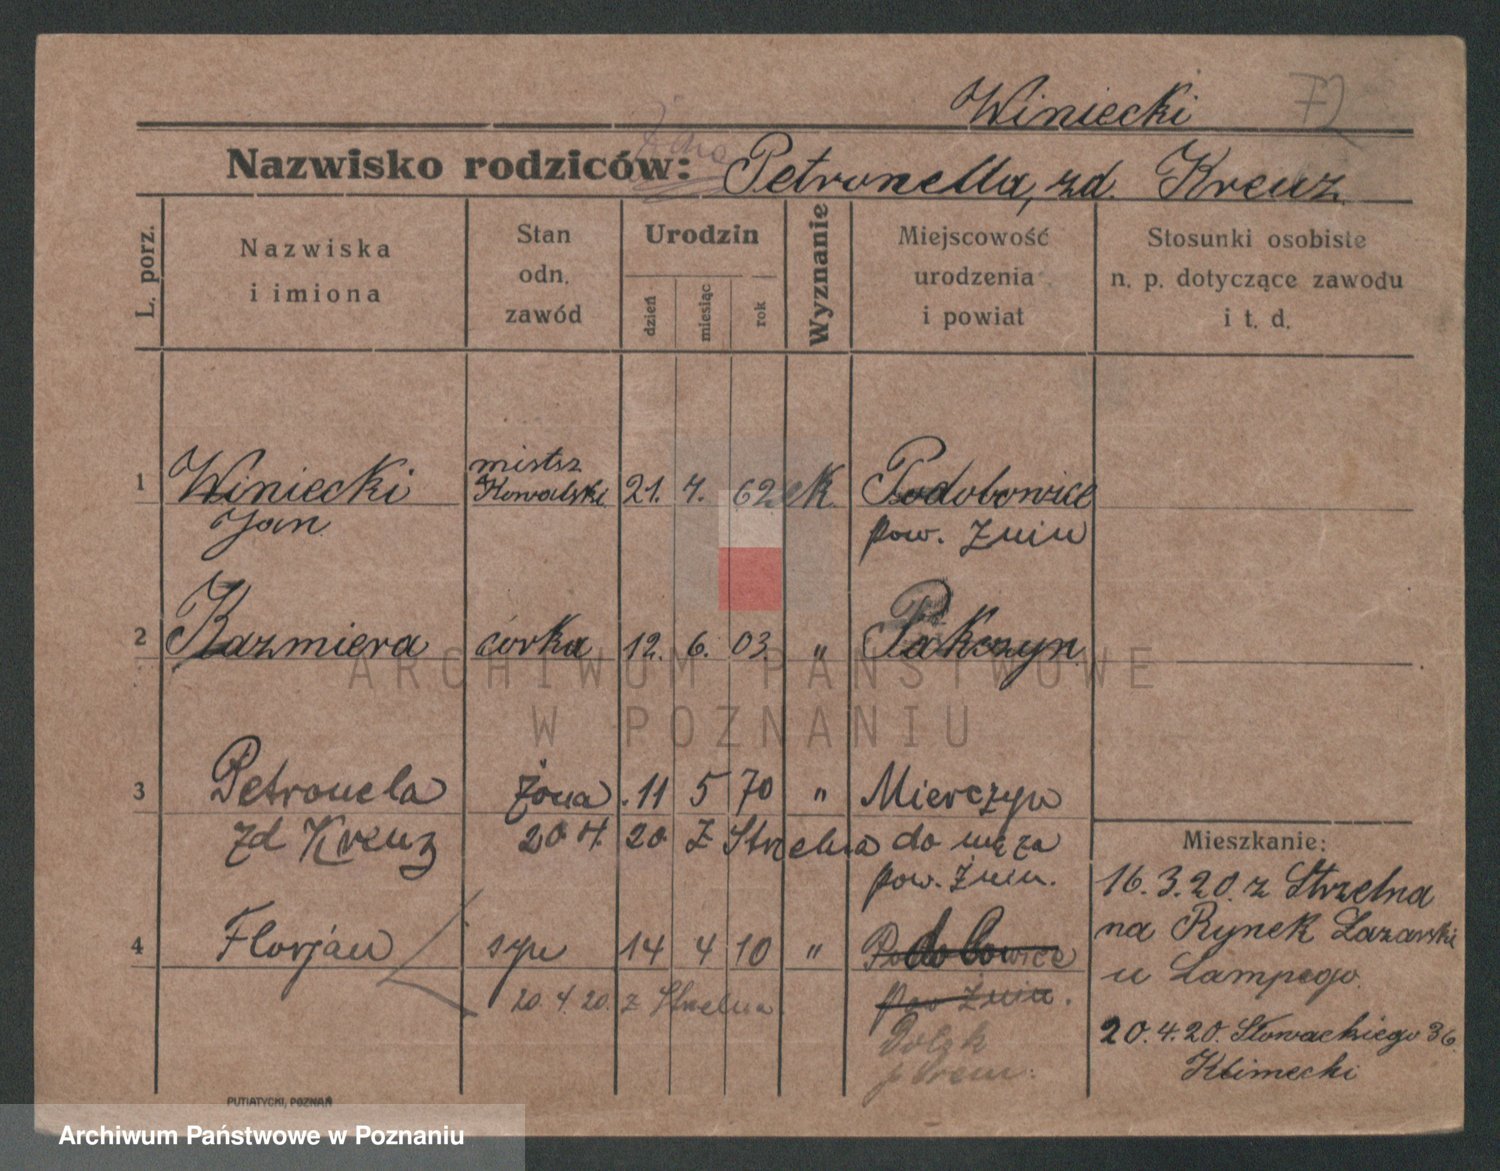 Winiecki
żona
Nazwisko rodziców: Petronella, zd. Kreuz
L. porz.
Nazwiska
i imiona
Stan
odn.
zawód
Urodzin
dzień
miesiąc
rok
Wyznanie
Miejscowość
urodzenia
i powiat
Stosunki osobiste
n. p. dotyczące zawodu
i t. d.
mistsz
1 Winiecki Kowalski 21. 4. 62 k. Podobowice
Jan pow. Żnin
2 Kazmiera córka 12. 6. 03. „ Pakczyn
ARCHIWUM PAŃSTWOWE
W POZNANIU
3 Petronela żona 11 5 70 „ Mierczyn
zd Kreuz 20 4. 20 z Strzelna do męża
pow. Żnin.
Mieszkanie:
16.3.20. z Strzelna
na Rynek Łazarski
u Lampego.
4 Florjan syn 14 4 10 „ Podobowice
20. 4. 20. z Strzelna pow Żnin.
Dolzk
p Srem.
20.4.20. Słowackiego 36.
Klimecki
PUTIATYCKI, POZNAŃ
Archiwum Państwowe w Poznaniu